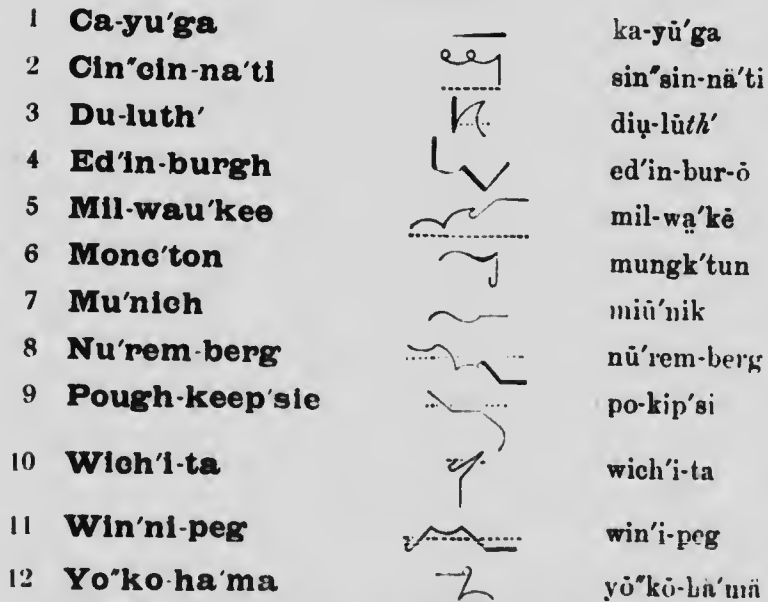 1 Ca-yu′ga ka-yū′ga
2 Cin″cin-na′ti sin″sin-nä′ti
3 Du-luth′ diụ-lūth′
4 Ed′in-burgh ed′in-bur-ō
5 Mil-wau′kee mil-wa̤′kē
6 Monc′ton mungk′tun
7 Mu′nich miū′nik
8 Nu′rem-berg nū′rem-berg
9 Pough-keep′sie po-kip′si
10 Wich′i-ta wich′i-ta
11 Win′ni-peg win′i-peg
12 Yo″ko-ha′ma yō″kō-hä′mä